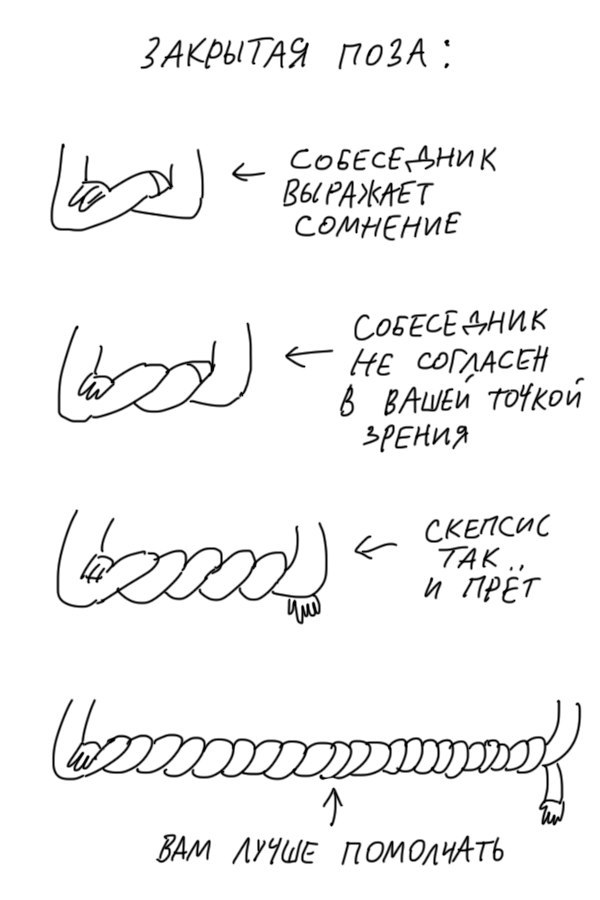 ЗАКРЫТАЯ ПОЗА:
СОБЕСЕДНИК
ВЫРАЖАЕТ
СОМНЕНИЕ
СОБЕСЕДНИК
НЕ СОГЛАСЕН
В ВАШЕЙ ТОЧКОЙ
ЗРЕНИЯ
СКЕПСИС
ТАК
И ПРЁТ
ВАМ ЛУЧШЕ ПОМОЛЧАТЬ